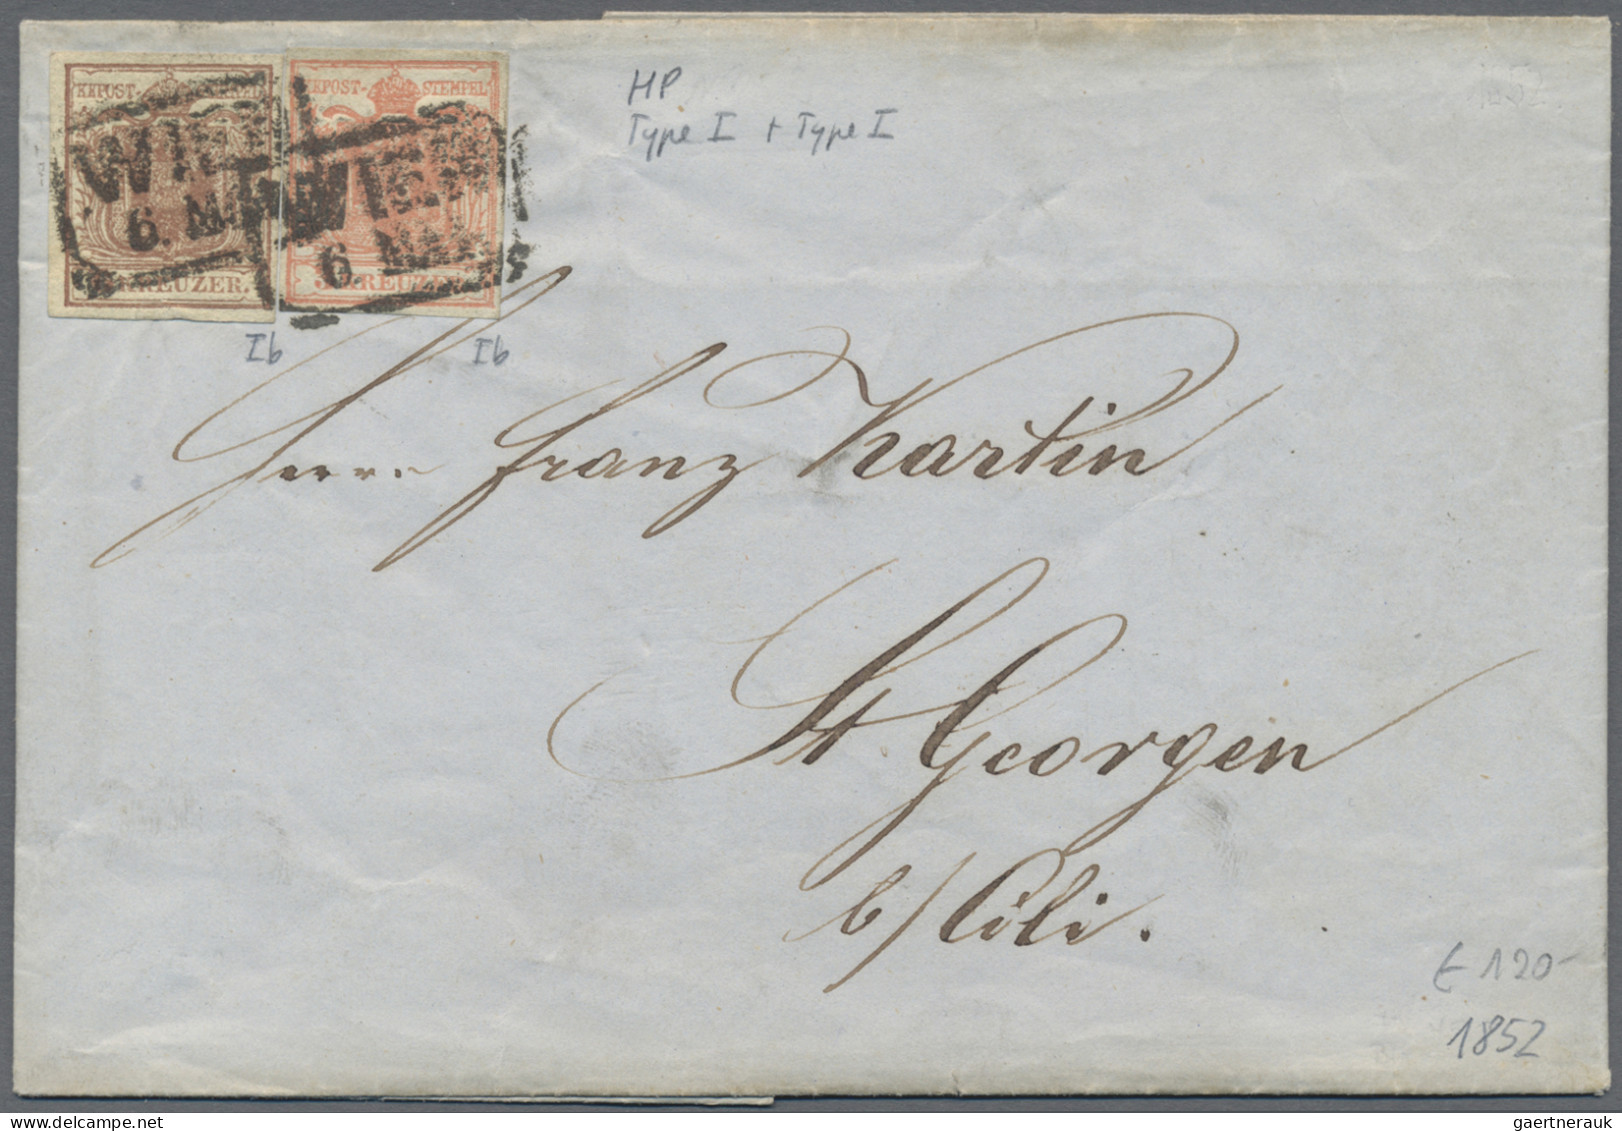 KKPOST-
KKPOST-STEMPEL
WIEN
6. MAI
WIEN
6. MAI
KREUZER.
3 KREUZER
HP
Type I + Type I
Ib
Ib
Herrn Franz Kartin
St Georgen
b/ Cili.
€ 120-
1852
gaertnerauk